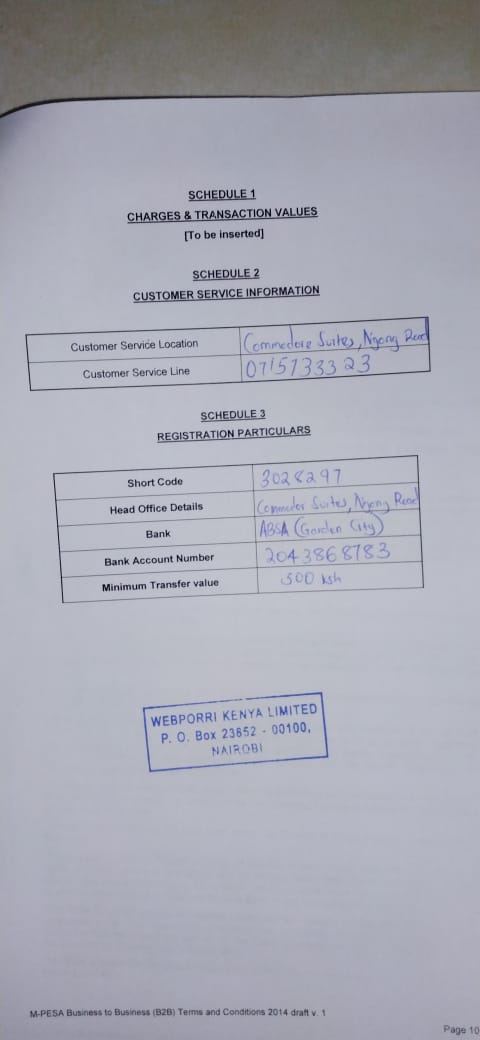 SCHEDULE 1
CHARGES & TRANSACTION VALUES
[To be inserted]
SCHEDULE 2
CUSTOMER SERVICE INFORMATION
Customer Service Location Commodore Suites, Ngong Road
Customer Service Line 0715733323
SCHEDULE 3
REGISTRATION PARTICULARS
Short Code 3028297
Head Office Details Commodor Suites, Ngong Road
Bank ABSA (Garden City)
Bank Account Number 2043868783
Minimum Transfer value 500 ksh
WEBPORRI KENYA LIMITED
P. O. Box 23652 - 00100,
NAIROBI
M-PESA Business to Business (B2B) Terms and Conditions 2014 draft v. 1
Page 10